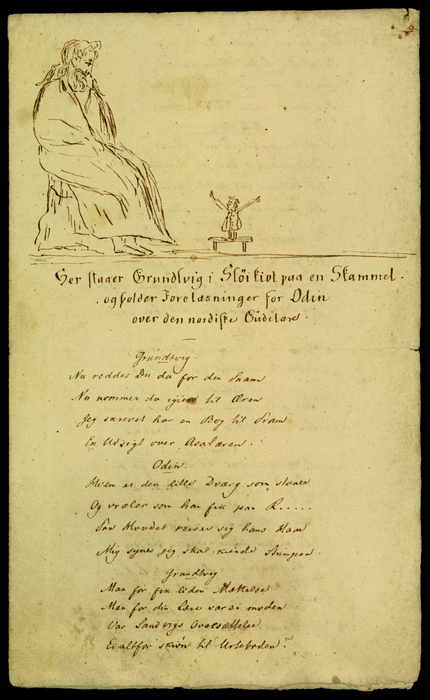 Her staaer Grundtvig i Sløikiol paa en Skammel.
og holder Forelæsninger for Odin
over den nordiske Gudelære.
Grundtvig.
Nu reddes Du da fra din Skam
Nu kommer du igien til Æren
Jeg skrevet har en Bog til Fram
En Udsigt over Asalæren.
Odin.
Hvem er den lille Dværg som staaer
Og vræler som han fik paa R.....
Paa Hovdet reiser sig hans Haar
Mig synes jeg skal kiende Stumpen.
Grundtvig
Man før fik liden
Men for din Lære var ei moden
Var Sandvigs Oversættelse
Ei altfor skiøn til Urteboden?